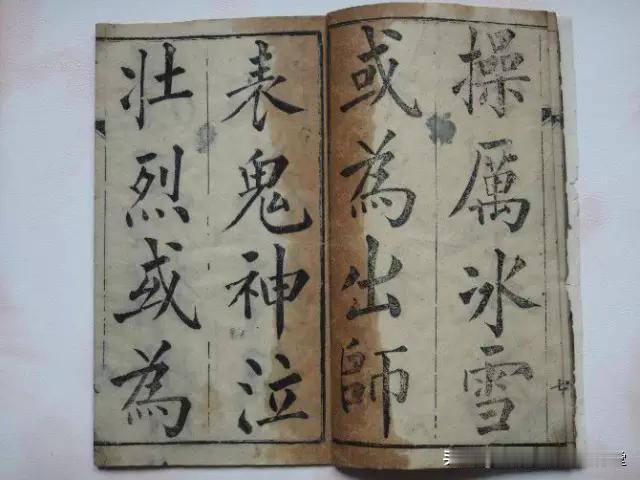 操厲冰雪
或為出師
表鬼神泣
壯烈或為